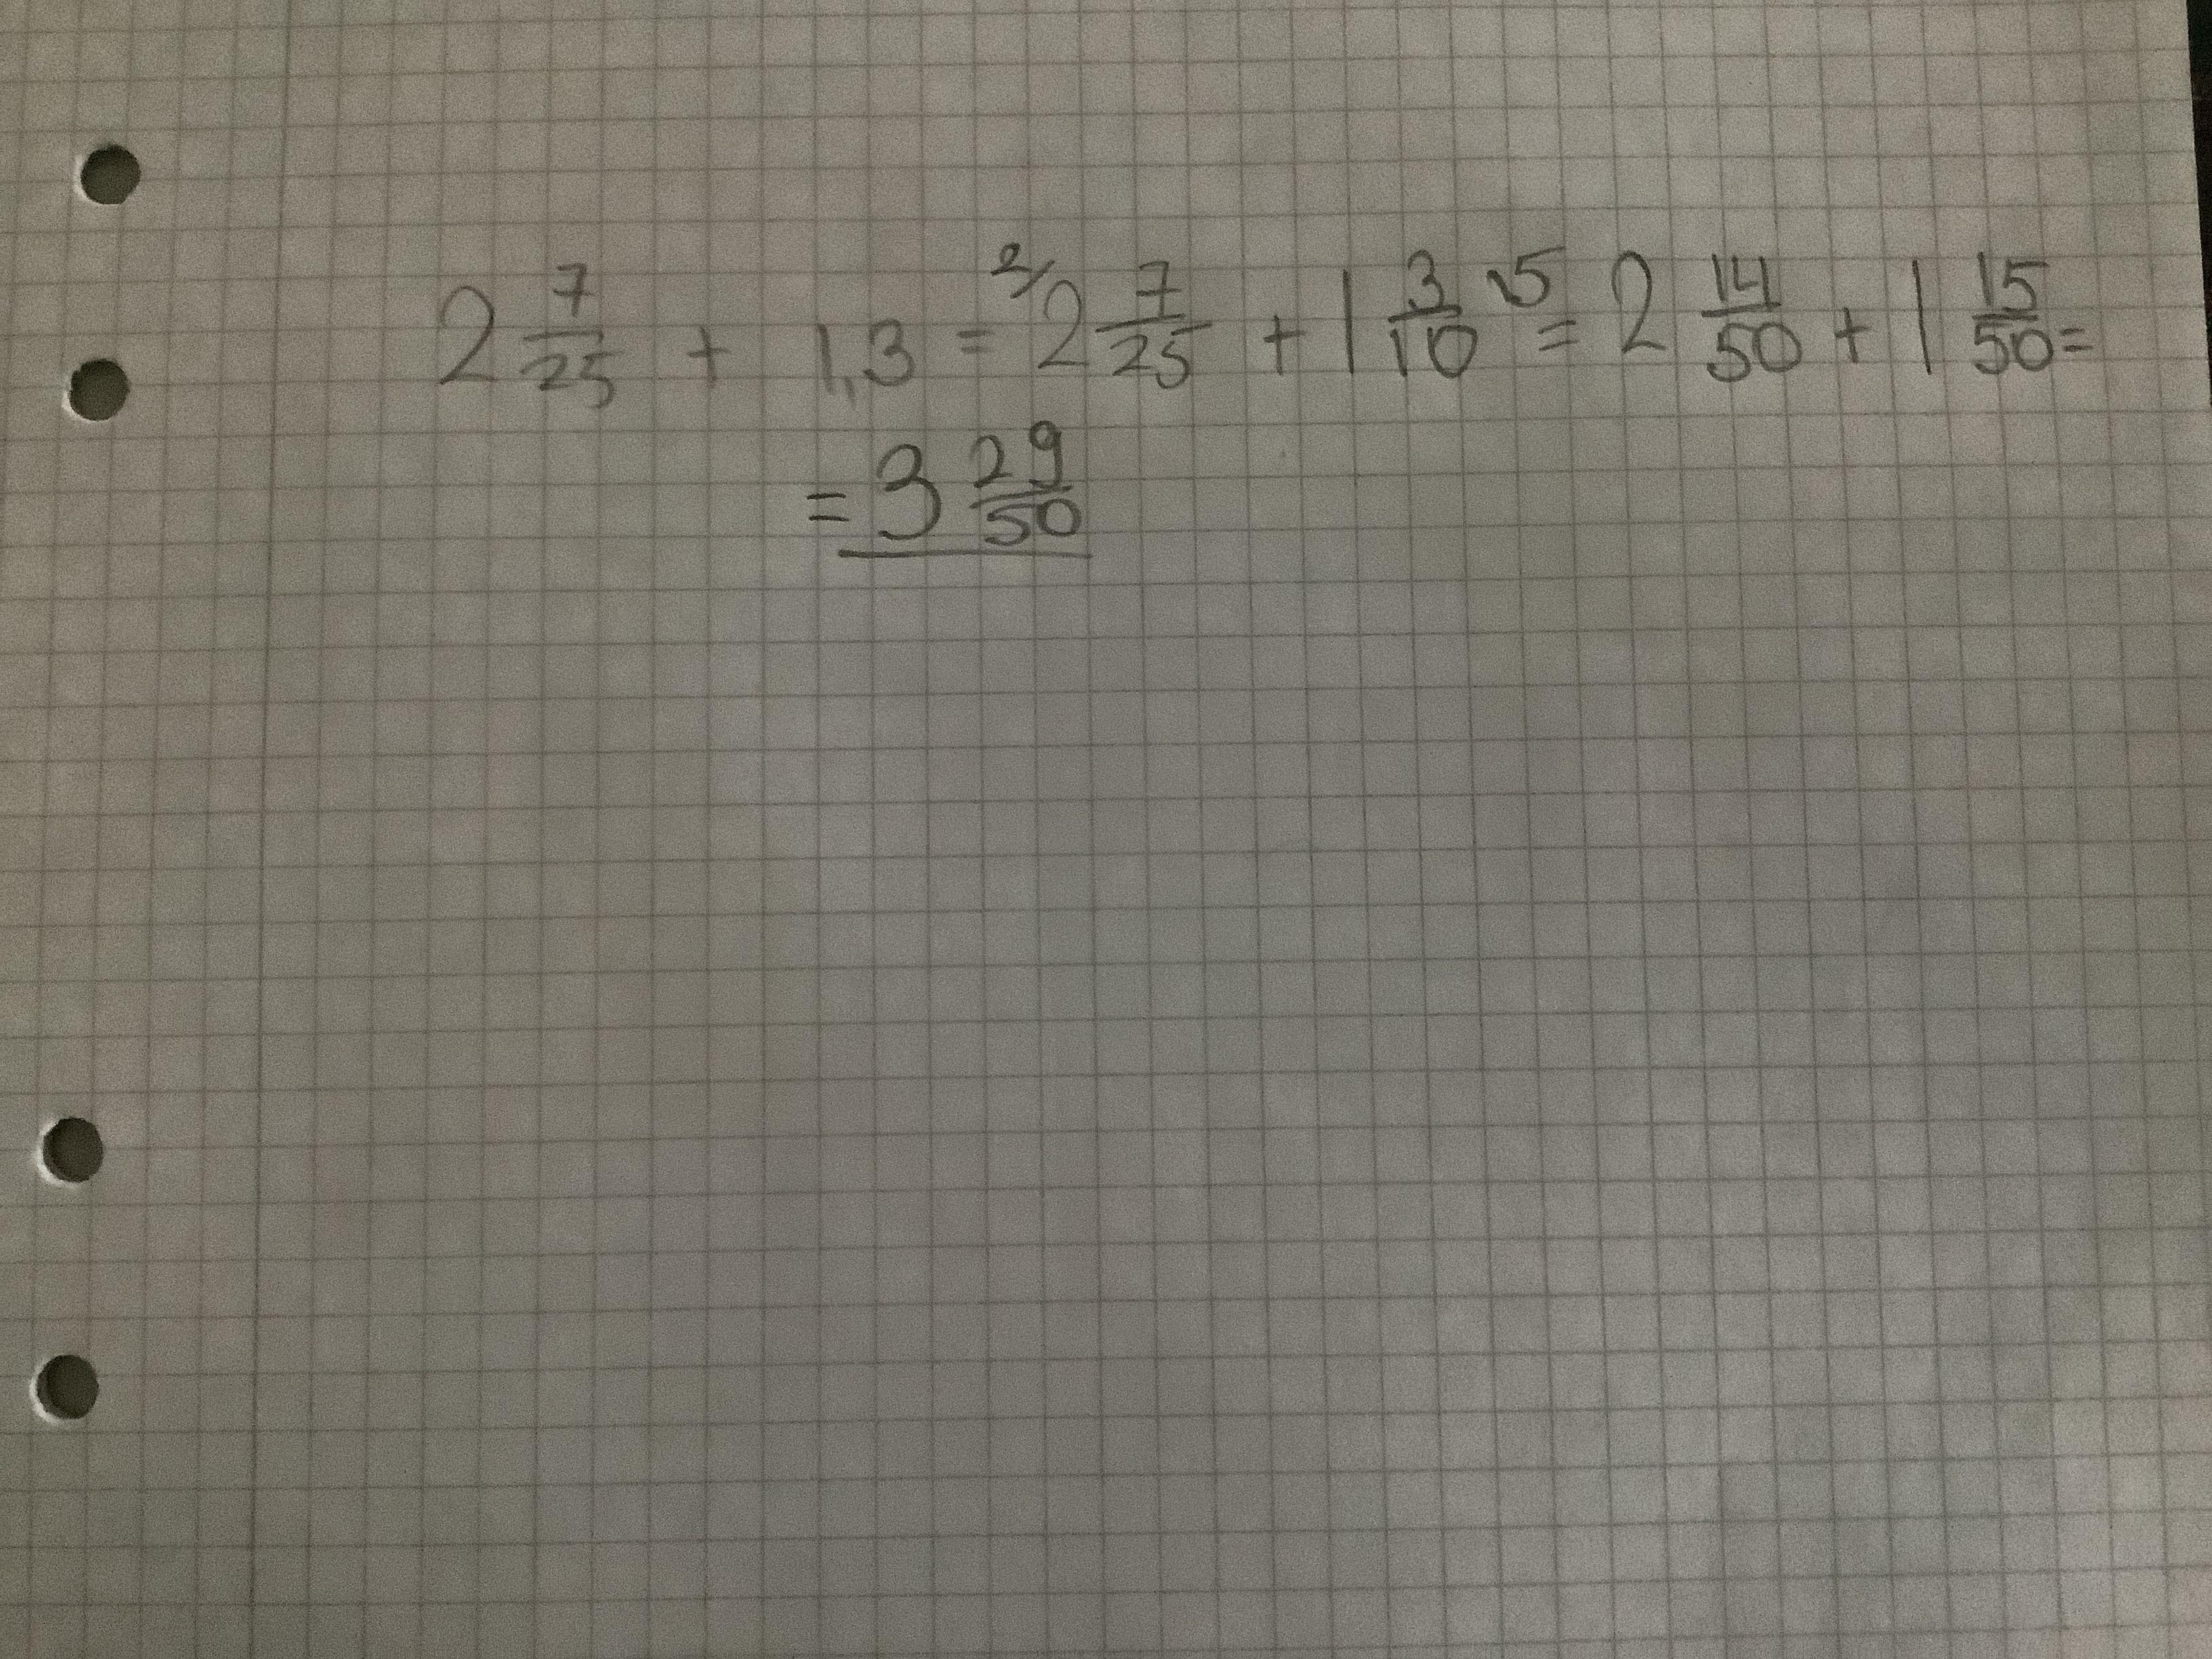 2 7/25 + 1,3 = 2/ 2 7/25 + 1 3/10 \5 = 2 14/50 + 1 15/50 =
= 3 29/50